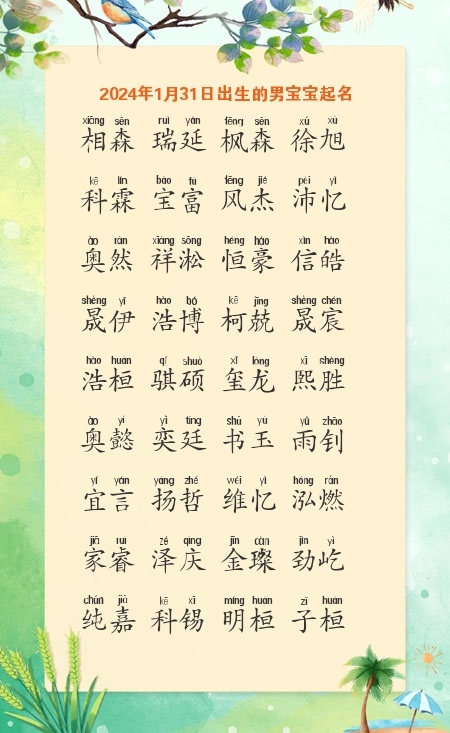 2024年1月31日出生的男宝宝起名
xiāng sēn ruì yán fēng sēn xú xù
相森 瑞延 枫森 徐旭
kē lín bǎo fù fēng jié pèi yì
科霖 宝富 风杰 沛忆
ào rán xiáng sōng héng háo xìn hào
奥然 祥淞 恒豪 信皓
shèng yī hào bó kē jīng shèng chén
晟伊 浩博 柯兢 晟宸
hào huán qí shuò xǐ lóng xī shèng
浩桓 骐硕 玺龙 熙胜
ào yì yì tíng shū yù yǔ zhāo
奥懿 奕廷 书玉 雨钊
yí yán yáng zhé wéi yì hóng rán
宜言 扬哲 维忆 泓燃
jiā ruì zé qìng jīn càn jìn yì
家睿 泽庆 金璨 劲屹
chún jiā kē xī míng huán zǐ huán
纯嘉 科锡 明桓 子桓